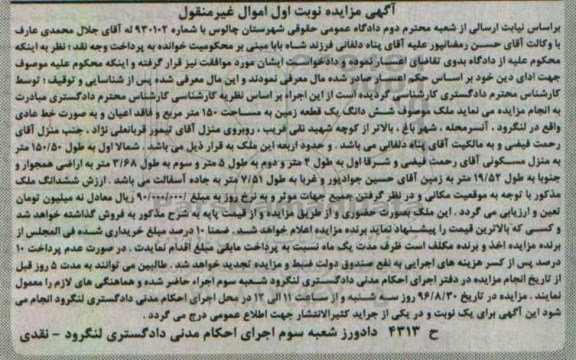 آگهی مزایده نوبت اول اموال غیرمنقول
براساس نیابت ارسالی از شعبه محترم دوم دادگاه عمومی حقوقی شهرستان چالوس با شماره ۹۳۰۱۰۲ له آقای جلال محمدی عارف
با وکالت آقای حسن رمضانپور علیه آقای پناه دلفانی فرزند شاه بابا مبنی بر محکومیت خوانده به پرداخت وجه نقد ؛ نظر به اینکه
محکوم علیه از دادگاه بدوی تقاضای اعسار نموده و دادخواست ایشان مورد موافقت نیز قرار گرفته و اینکه محکوم علیه موصوف
جهت ادای دین خود بر اساس حکم اعسار صادر شده مال معرفی نمودند و این مال معرفی شده پس از شناسایی و توقیف ؛ توسط
کارشناس محترم دادگستری کارشناسی گردیده است از این اجراء بر اساس نظریه کارشناسی کارشناس محترم دادگستری مبادرت
به انجام مزایده می نماید ملک موصوف شش دانگ یک قطعه زمین به مساحت ۱۵۰ متر مربع و فاقد اعیان و به صورت خط عادی
واقع در لنگرود ، آنسرمحله ، شهر باغ ، بالاتر از کوچه شهید نقی غریب ، روبروی منزل آقای تیمور قربانعلی نژاد ، جنب منزل آقای
رحمت فیضی و به مالکیت آقای پناه دلفانی می باشد . و حدود اربعه این ملک به قرار ذیل می باشد . شمالا اول به طول ۱۵/۵۰ متر
به منزل مسکونی آقای رحمت فیضی و شرقا اول به طول ۴ متر و دوم به طول ۵ متر و سوم به طول ۳/۶۸ متر به اراضی همجوار و
جنوبا به طول ۱۹/۵۲ متر به زمین آقای حسین جوادپور و غربا به طول ۷/۵۱ متر به جاده آسفالت می باشد . ارزش ششدانگ ملک
مذکور با توجه به موقعیت مکانی و در نظر گرفتن جمیع جهات موثر و به نرخ روز به مبلغ /۹۰/۰۰۰/۰۰۰ ریال معادل نه میلیون تومان
تعین و ارزیابی می گردد . این ملک بصورت حضوری و از طریق مزایده و از قیمت پایه به شرح مذکور به فروش گذاشته خواهد شد
و کسی که بالاترین قیمت را پیشنهاد نماید برنده مزایده اعلام خواهد شد . ضمنا ۱۰ درصد مبلغ خریداری شده فی المجلس از
برنده مزایده اخذ و برنده مکلف است ظرف مدت یک ماه نسبت به پرداخت مابقی مبلغ اقدام نمایدت . در صورت عدم پرداخت ۱۰
درصد پس از کسر هزینه های اجرایی به نفع صندوق دولت ضبط و مزایده تجدید خواهد شد . طالبین می توانند به مدت ۵ روز قبل
از تاریخ انجام مزایده در دفتر اجرای احکام مدنی دادگستری لنگرود شعبه سوم اجراء حاضر شده و هماهنگی های لازم را معمول
نمایند . مزایده در تاریخ ۹۶/۸/۳۰ روز سه شنبه و از ساعت ۱۱ الی ۱۲ در محل اجرای احکام مدنی دادگستری لنگرود انجام می
شود این آگهی برای یک نوبت و در یکی از جراید کثیرالانتشار جهت اطلاع عمومی درج می گردد .
ح ۴۳۱۳ دادورز شعبه سوم اجرای احکام مدنی دادگستری لنگرود - نقدی